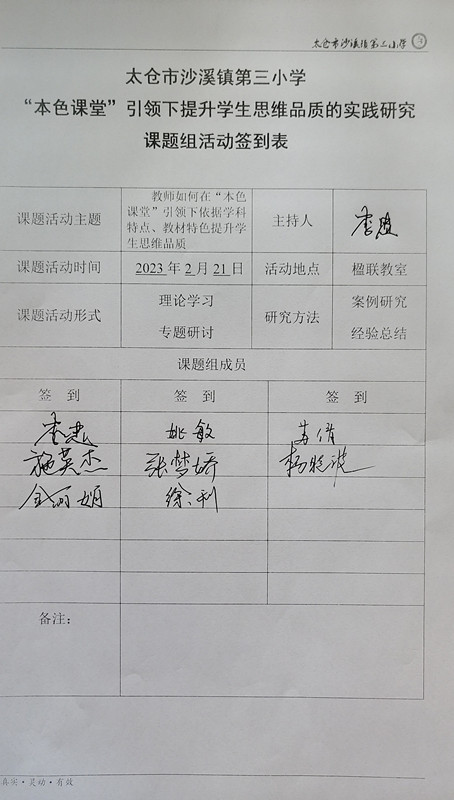 太仓市沙溪镇第三小学 3
太仓市沙溪镇第三小学
“本色课堂”引领下提升学生思维品质的实践研究
课题组活动签到表
课题活动主题
教师如何在“本色
课堂”引领下依据学科
特点、教材特色提升学
生思维品质
主持人
课题活动时间
2023 年 2 月 21 日
活动地点
楹联教室
课题活动形式
理论学习
专题研讨
研究方法
案例研究
经验总结
课题组成员
签 到
签 到
签 到
姚敏
苏倩
施英杰
张梦娇
杨晓波
徐刊
备注:
真实·灵动·有效